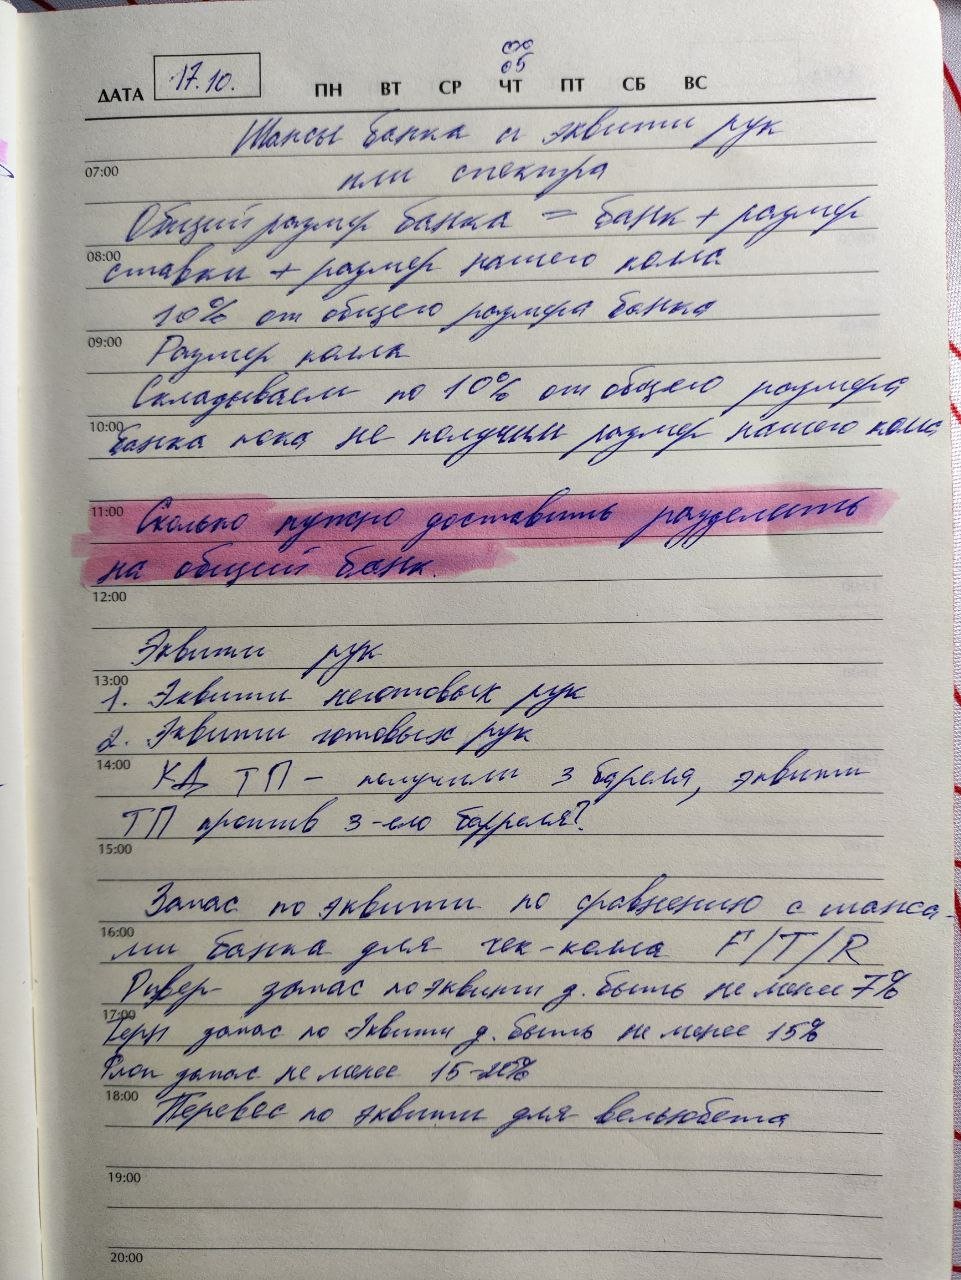 ДАТА 17.10. ПН ВТ СР ЧТ ПТ СБ ВС
Шансы банка и эквити рук
07:00
или спектра
Общий размер банка = банк + размер
08:00
ставки + размер нашего колла
10% от общего размера банка
09:00
Размер колла
Складываем по 10% от общего размера
10:00
банка пока не получим размер нашего колла
11:00
Сколько нужно доставить разделить
на общий банк.
12:00
Эквити рук
13:00
1. Эквити неготовых рук
2. Эквити готовых рук
14:00
КД ТП - получили 3 бареля, эквити
ТП против 3-его барреля?
15:00
Запас по эквити по сравнению с шанса-
16:00
ми банка для чек-колла F/T/R
Ривер - запас по эквити д. быть не менее 7%
17:00
Терн запас по эквити д. быть не менее 15%
Флоп запас не менее 15-20%
18:00
Перевес по эквити для вельюбета
19:00
20:00